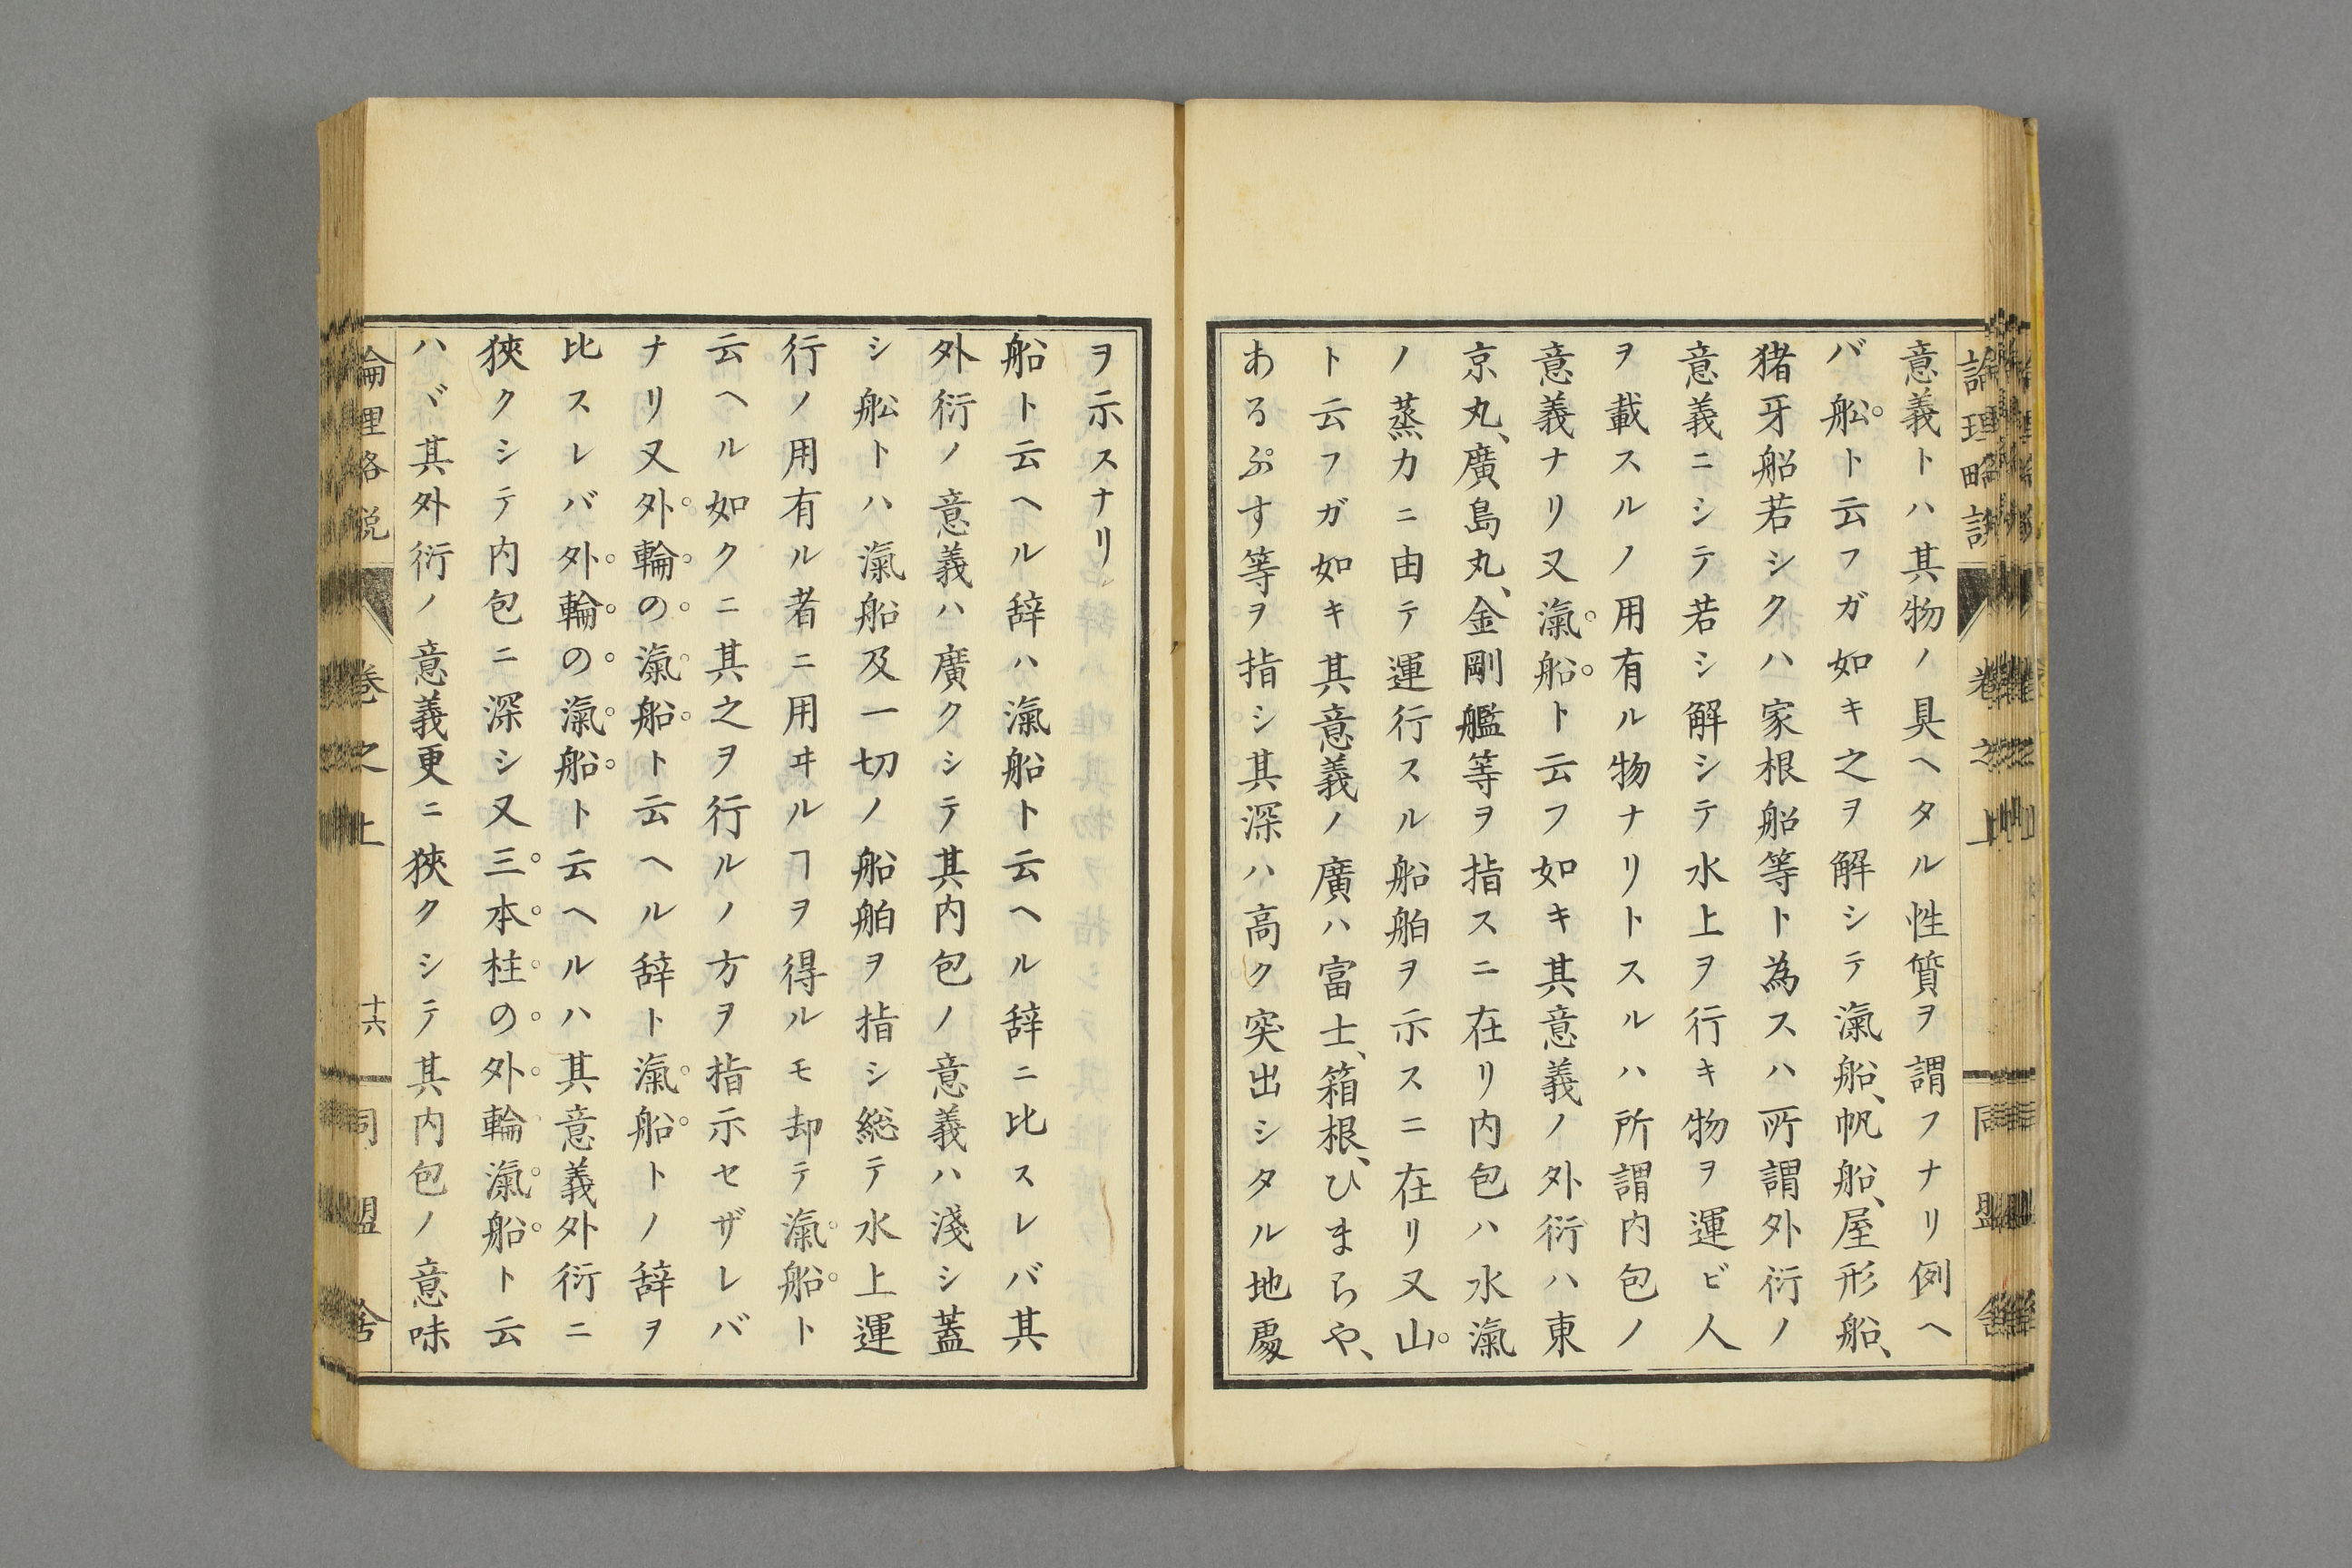 論理略説 巻之上 同盟舎
意義トハ其物ノ具ヘタル性質ヲ謂フナリ例ヘ
バ舩ト云フガ如キ之ヲ解シテ滊船、帆船、屋形船、
猪牙船若シクハ家根船等ト為スハ所謂外衍ノ
意義ニシテ若シ解シテ水上ヲ行キ物ヲ運ビ人
ヲ載スルノ用有ル物ナリトスルハ所謂内包ノ
意義ナリ又滊船ト云フ如キ其意義ノ外衍ハ東
京丸、廣島丸、金剛艦等ヲ指スニ在リ内包ハ水滊
ノ蒸力ニ由テ運行スル船舶ヲ示スニ在リ又山
ト云フガ如キ其意義ノ廣ハ富士、箱根、ひまらや、
あるぷす等ヲ指シ其深ハ高ク突出シタル地處
ヲ示スナリ
船ト云ヘル辞ハ滊船ト云ヘル辞ニ比スレバ其
外衍ノ意義ハ廣クシテ其内包ノ意義ハ淺シ蓋
シ舩トハ滊船及一切ノ船舶ヲ指シ総テ水上運
行ノ用有ル者ニ用ヰルヿヲ得ルモ却テ滊船ト
云ヘル如クニ其之ヲ行ルノ方ヲ指示セザレバ
ナリ又外輪の滊船ト云ヘル辞ト滊船トノ辞ヲ
比スレバ外輪の滊船ト云ヘルハ其意義外衍ニ
狹クシテ内包ニ深シ又三本柱の外輪滊船ト云
ハヾ其外衍ノ意義更ニ狹クシテ其内包ノ意味
論理略説 巻之上 十六 同盟舎